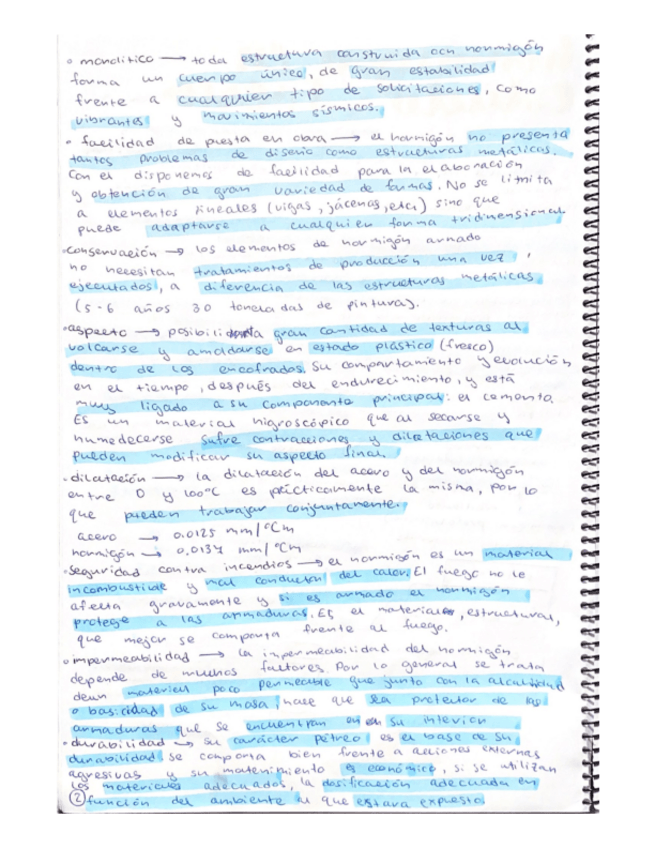 • monolítico → toda estructura construida con hormigón
forma un cuerpo único, de gran estabilidad
frente a cualquier tipo de solicitaciones, como
vibrantes y movimientos sísmicos.
• facilidad de puesta en obra → el hormigón no presenta
tantos problemas de diseño como estructuras metálicas.
Con el disponemos de facilidad para la elaboración
y obtención de gran variedad de formas. No se limita
a elementos lineales (vigas, jácenas, etc.) sino que
puede adaptarse a cualquier forma tridimensional
•conservación → los elementos de hormigón armado
no necesitan tratamientos de producción una vez
ejecutados, a diferencia de las estructuras metálicas
(5-6 años 30 toneladas de pintura).
•aspecto → posibilidad gran cantidad de texturas al
volcarse y amoldarse en estado plástico (fresco)
dentro de los encofrados. Su comportamiento y evolución
en el tiempo, después del endurecimiento, y está
muy ligado a su componente principal: el cemento.
Es un material higroscópico que al secarse y
humedecerse sufre contracciones y dilataciones que
pueden modificar su aspecto final.
•dilatación → la dilatación del acero y del hormigón
entre 0 y 100°C es prácticamente la misma, por lo
que pueden trabajar conjuntamente.
acero → 0.0125 mm/°Cm
hormigón → 0.0137 mm/°Cm
•seguridad contra incendios → el hormigón es un material
incombustible y mal conductor del calor. El fuego no le
afecta gravamente y si es armado el hormigón
protege a las armaduras. Es el material, estructural,
que mejor se comporta frente al fuego.
• impermeabilidad → la impermeabilidad del hormigón
depende de muchos factores. Por lo general se trata
de un material poco permeable que junto con la alcalinidad
o basicidad de su masa, hace que sea protector de las
armaduras que se encuentran en su interior
•durabilidad → su carácter pétreo es el base de su
durabilidad se comporta bien frente a acciones externas
agresivas y su mantenimiento es económico, si se utilizan
los materiales adecuados, la dosificación adecuada en
② función del ambiente al que estara expuesto